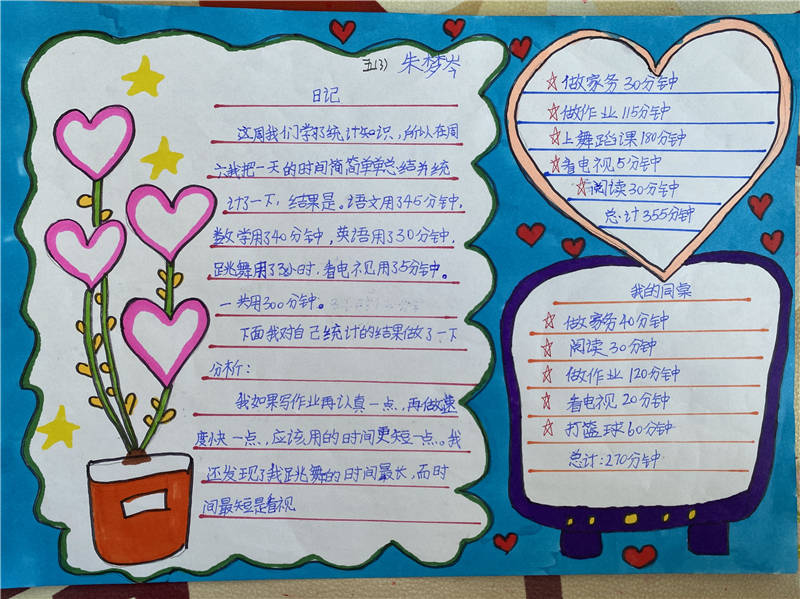 五(3) 朱梦岑
日记
这周我们学了统计知识，所以在周
六我把一天的时间简简单单总结并统
计了一下，结果是。语文用了45分钟，
数学用了40分钟，英语用了30分钟，
跳舞用了3小时，看电视用了5分钟。
一共用300分钟。
下面我对自己统计的结果做了一下
分析：
我如果写作业再认真一点，再做速
度快一点，应该用的时间更短一点。我
还发现了我跳舞的时间最长，而时
间最短是看视
☆做家务30分钟
☆做作业115分钟
☆上舞蹈课180分钟
☆看电视5分钟
☆阅读30分钟
总计355分钟
我的同桌
☆ 做家务40分钟
☆ 阅读30分钟
☆ 做作业120分钟
☆ 看电视20分钟
☆ 打篮球60分钟
总计：270分钟